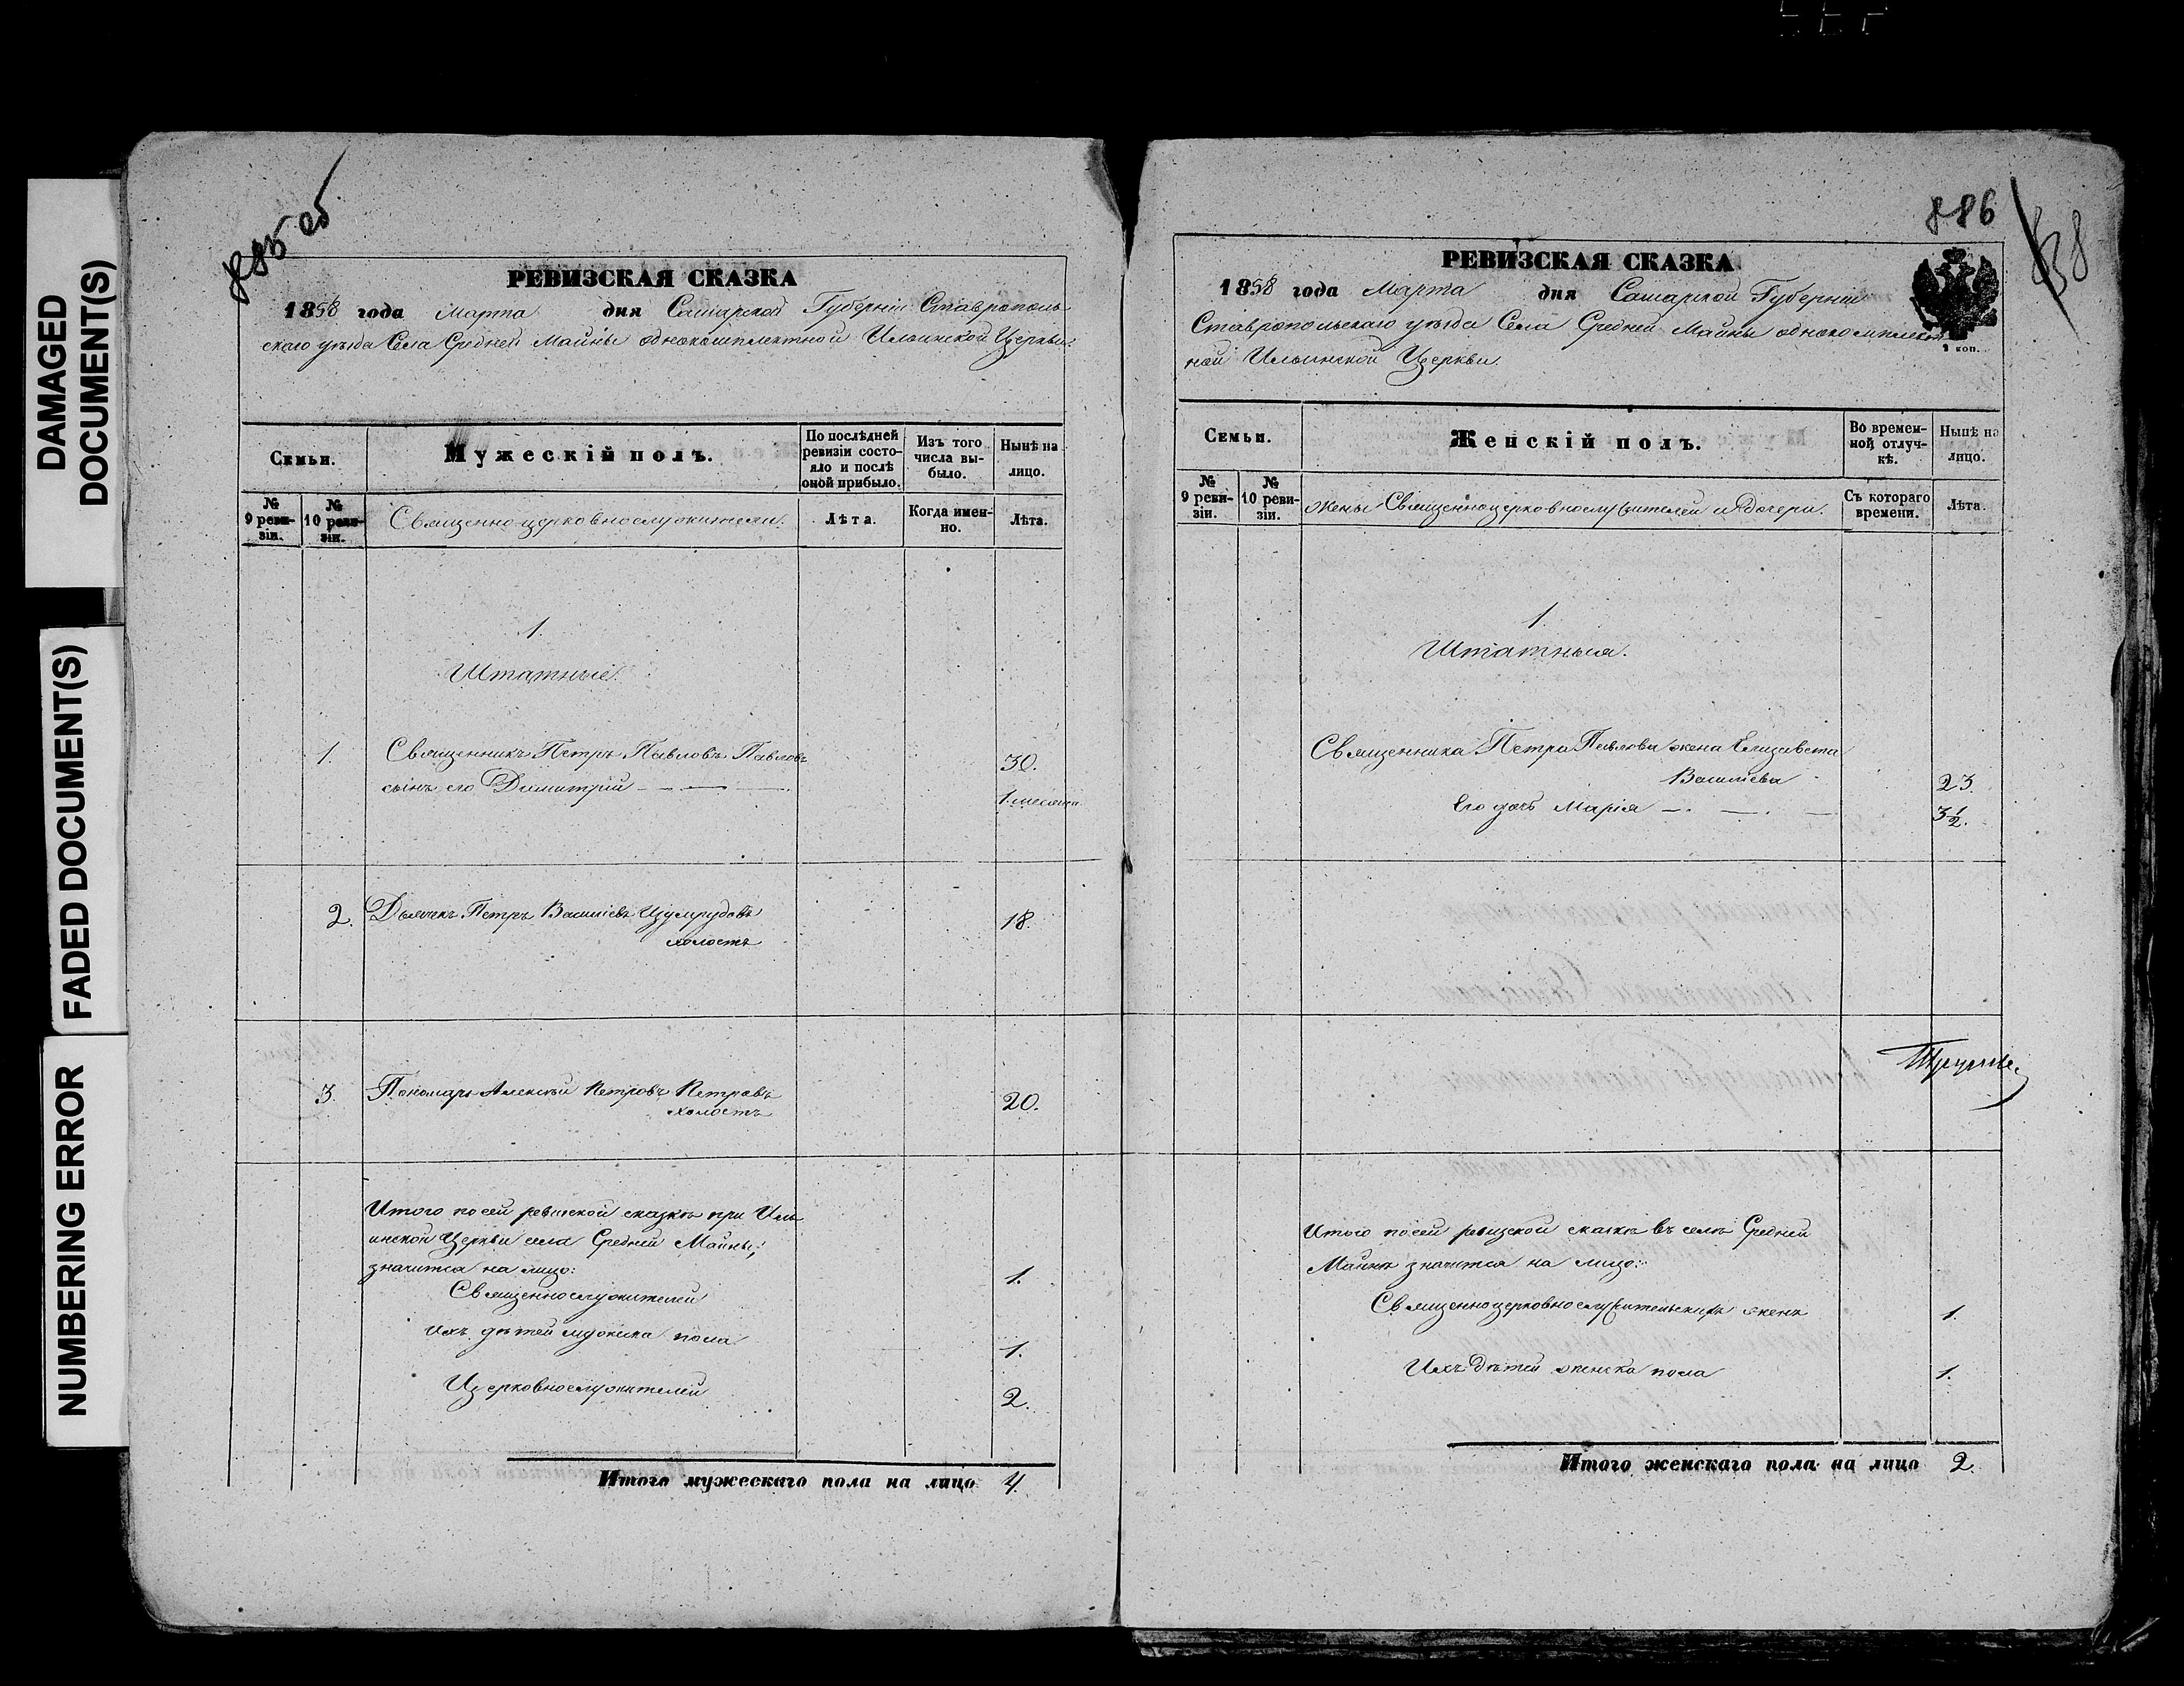 DAMAGED
DOCUMENT(S)
FADED DOCUMENT(S)
NUMBERING ERROR
885 об
РЕВИЗСКАЯ СКАЗКА
1858 года Марта дня Самарской Губерніи Ставрополь
скаго уѣзда Села Средней Майны однокомплектной Ильинской Церкви:
Семьи.
Мужескій полъ.
По послѣдней ревизіи состояло и послѣ оной прибыло.
Изъ того числа выбыло.
Нынѣ на лицо.
№ 9 ревизіи.
№ 10 ревизіи.
Священно-церковнослужители.
Лѣта.
Когда именно.
Лѣта.
1.
Штатные.
1. Священникъ Петръ Павловъ Павловъ 30.
сынъ его Димитрій — — — 1. месяца
2. Дьячекъ Петръ Васильевъ Изумрудовъ 18.
холостъ
3. Пономарь Алексѣй Петровъ Петровъ 20.
холостъ
Итого по сей ревизской сказкѣ при Иль
инской Церкви села Средней Майны,
значится на лицо:
Священнослужителей 1.
Ихъ дѣтей мужска пола 1.
Церковнослужителей 2.
Итого мужескаго пола на лицо 4.
886
838
РЕВИЗСКАЯ СКАЗКА
1858 года Марта дня Самарской Губерніи
Ставропольскаго уѣзда Села Средней Майны однокомплект
ной Ильинской Церкви.
2 коп.
Семьи.
Женскій полъ.
Во временной отлучкѣ.
Нынѣ на лицо.
№ 9 ревизіи.
№ 10 ревизіи.
Жены Священноцерковнослужителей и Дочери.
Съ котораго времени.
Лѣта.
1.
Штатныя.
Священника Петра Павлова жена Елизавета
Васильева 23.
Его дочь Марія — — — 3½.
Итого по сей ревизской сказкѣ въ селѣ Средней
Майнѣ значится на лицо:
Священноцерковнослужительскихъ женъ 1.
Ихъ дѣтей женска пола 1.
Итого женскаго пола на лицо 2.